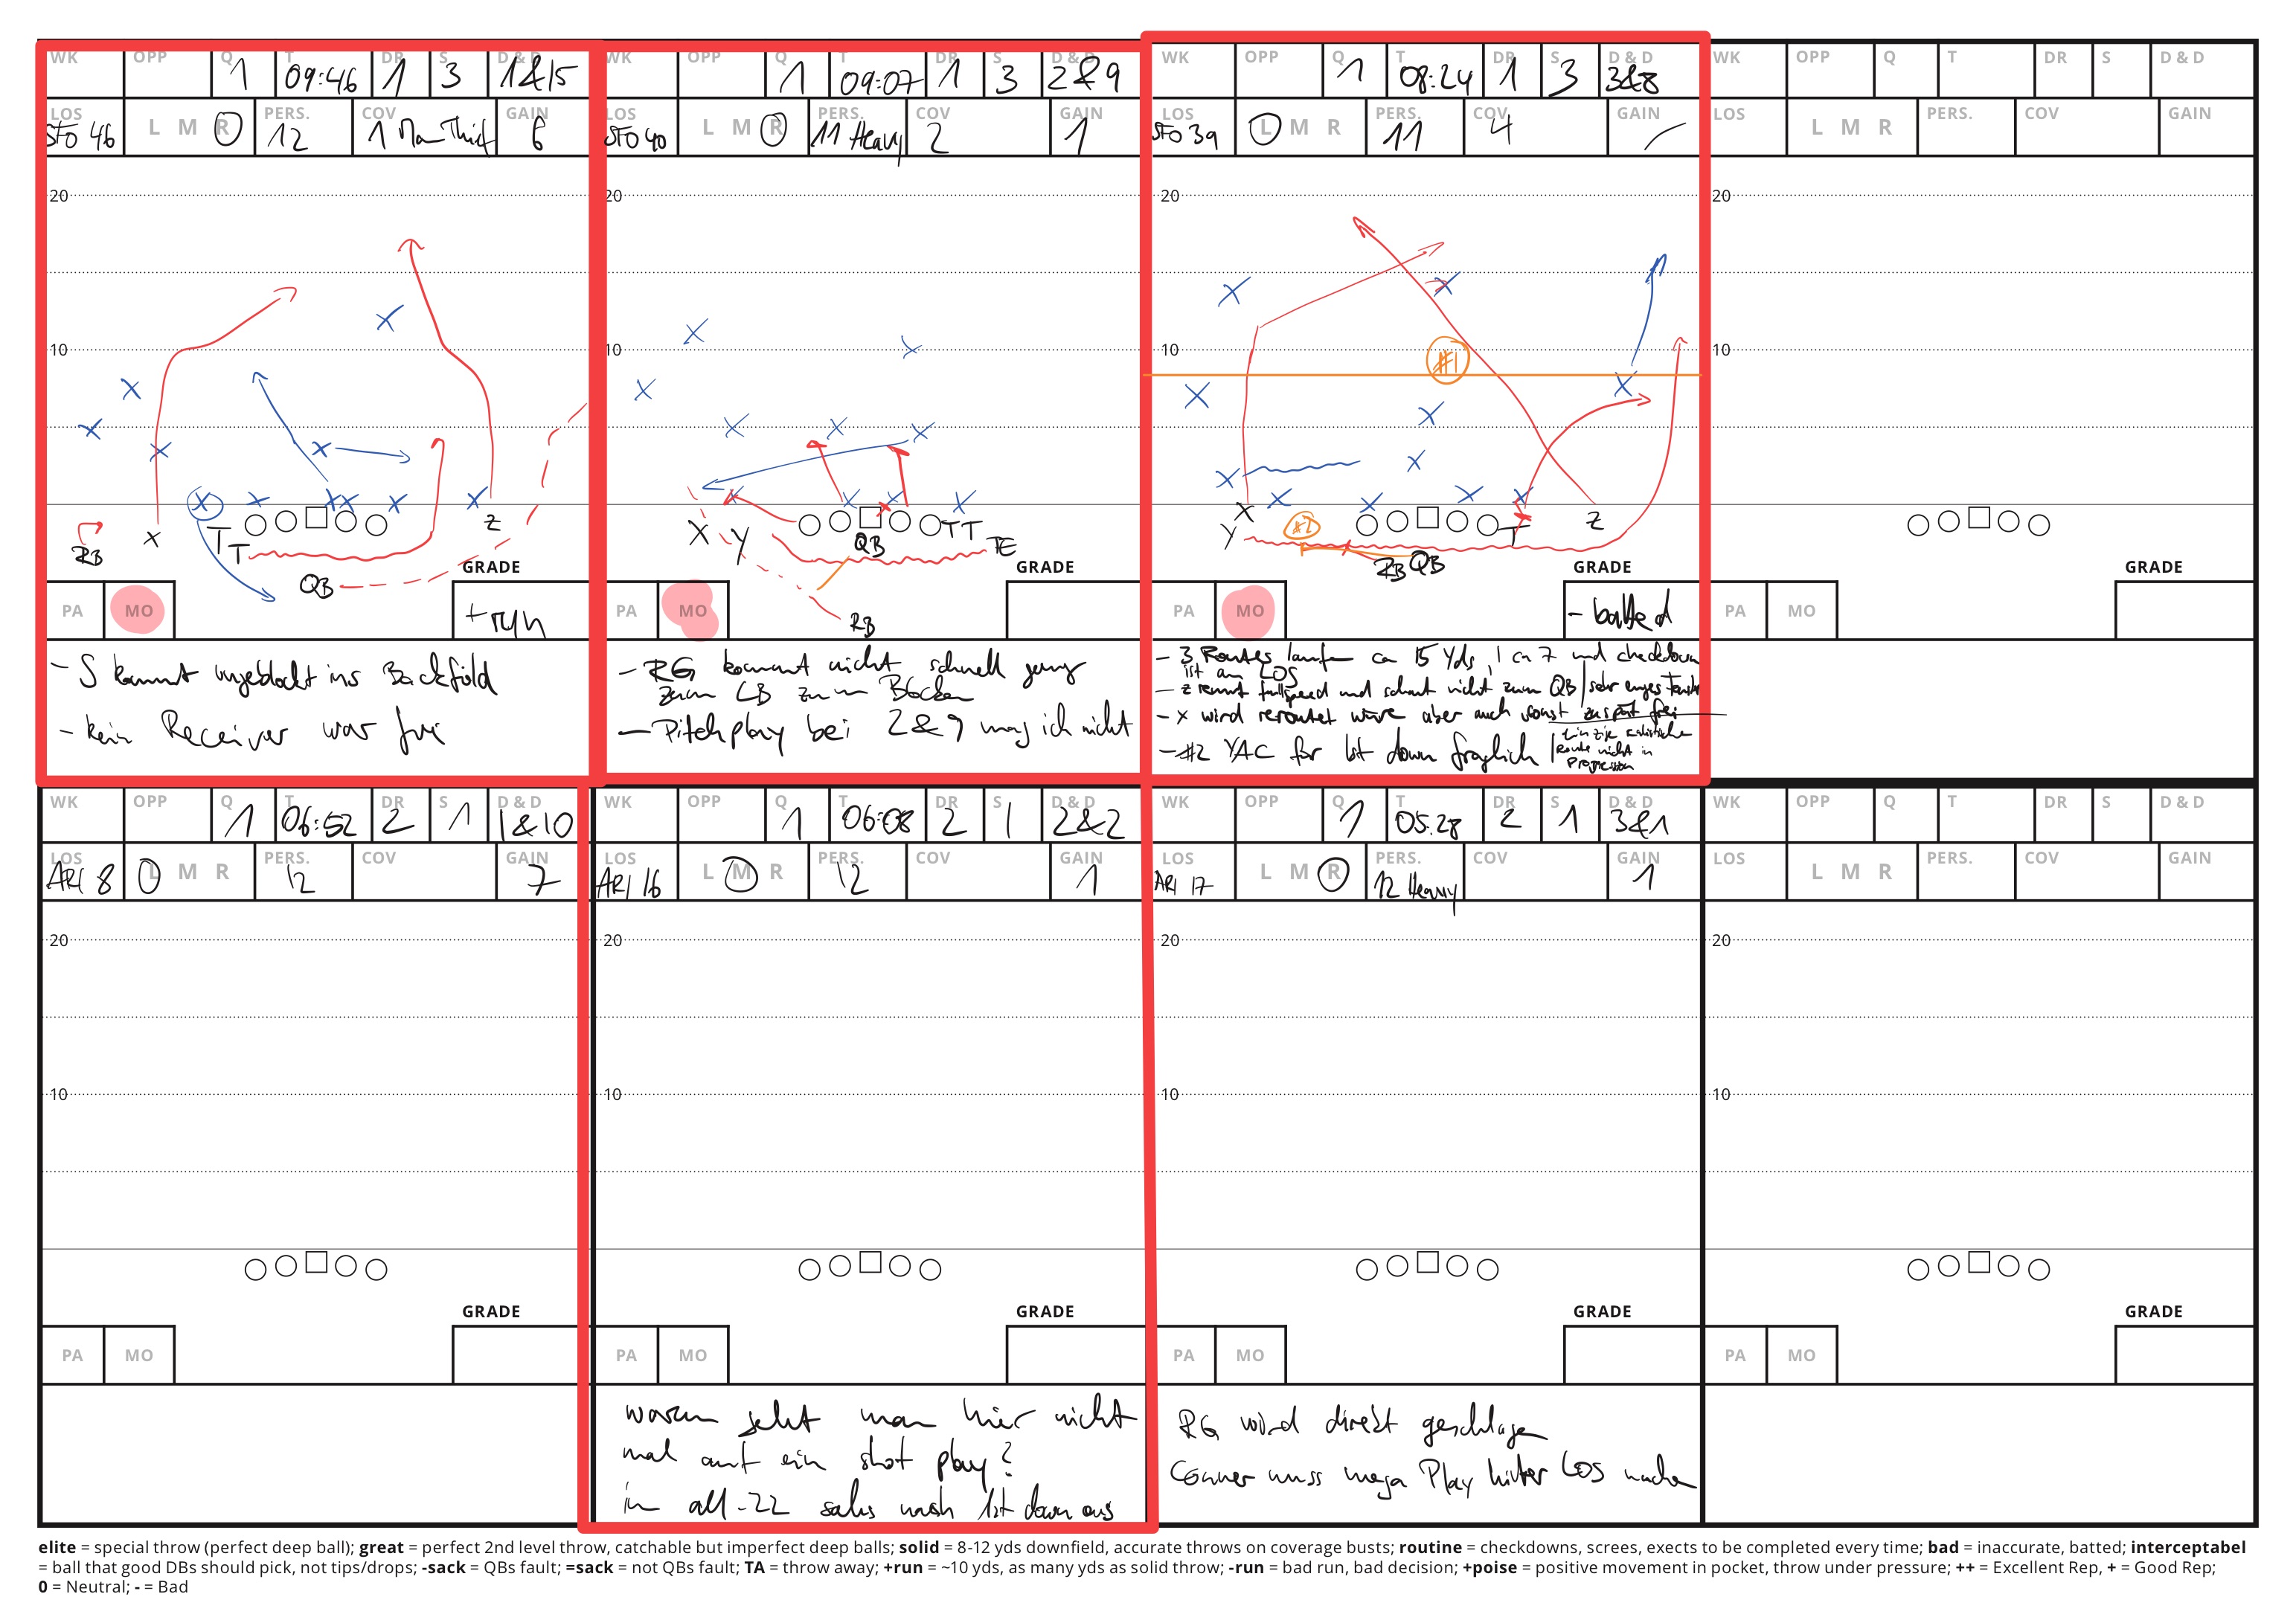 WK OPP Q 1 T 09:46 DR 1 S 3 D & D 1&15
LOS SFO 46 L M R PERS. 12 COV 1 Man Thief GAIN 6
20
10
X
T
T
Z
RB
QB
GRADE
PA MO + run
- S kommt ungeblockt ins Backfield
- kein Receiver war frei
WK OPP Q 1 T 09:07 DR 1 S 3 D & D 2&9
LOS SFO 40 L M R PERS. 11 Heavy COV 2 GAIN 1
20
10
X Y QB TT TE
RB
GRADE
PA MO
- RG kommt nicht schnell genug
zum CB zum Blocken
- Pitchplay bei 2&9 mag ich nicht
WK OPP Q 1 T 08:24 DR 1 S 3 D & D 3&8
LOS SFO 39 L M R PERS. 11 COV 4 GAIN
20
10
#1
X
Y
#2
T
Z
RB QB
GRADE
PA MO - batted
- 3 Routes laufen ca 15 Yds, 1 ca 7 und checkdown
ist an LOS
- Z rennt fullspeed und schaut nicht zum QB / sehr enges
- X wird reroutet wäre aber auch sonst zu spät frei
- #2 YAC für 1st down fraglich / einzige realistische
Route nicht in
Progression
WK OPP Q T DR S D & D
LOS L M R PERS. COV GAIN
20
10
GRADE
PA MO
WK OPP Q 1 T 06:52 DR 2 S 1 D & D 1&10
LOS ARI 8 L M R PERS. 12 COV GAIN 7
20
10
GRADE
PA MO
WK OPP Q 1 T 06:08 DR 2 S 1 D & D 2&2
LOS ARI 16 L M R PERS. 12 COV GAIN 1
20
10
GRADE
PA MO
warum geht man hier nicht
mal auf ein shot play?
in all-22 sahs nach 1st down aus
WK OPP Q 1 T 05:28 DR 2 S 1 D & D 3&1
LOS ARI 17 L M R PERS. 12 Heavy COV GAIN 1
20
10
GRADE
PA MO
RG wird direkt geschlagen
Conner muss mega Play hinter LOS machen
WK OPP Q T DR S D & D
LOS L M R PERS. COV GAIN
20
10
GRADE
PA MO
elite = special throw (perfect deep ball); great = perfect 2nd level throw, catchable but imperfect deep balls; solid = 8-12 yds downfield, accurate throws on coverage busts; routine = checkdowns, screes, exects to be completed every time; bad = inaccurate, batted; interceptabel
= ball that good DBs should pick, not tips/drops; -sack = QBs fault; =sack = not QBs fault; TA = throw away; +run = ~10 yds, as many yds as solid throw; -run = bad run, bad decision; +poise = positive movement in pocket, throw under pressure; ++ = Excellent Rep, + = Good Rep;
0 = Neutral; - = Bad